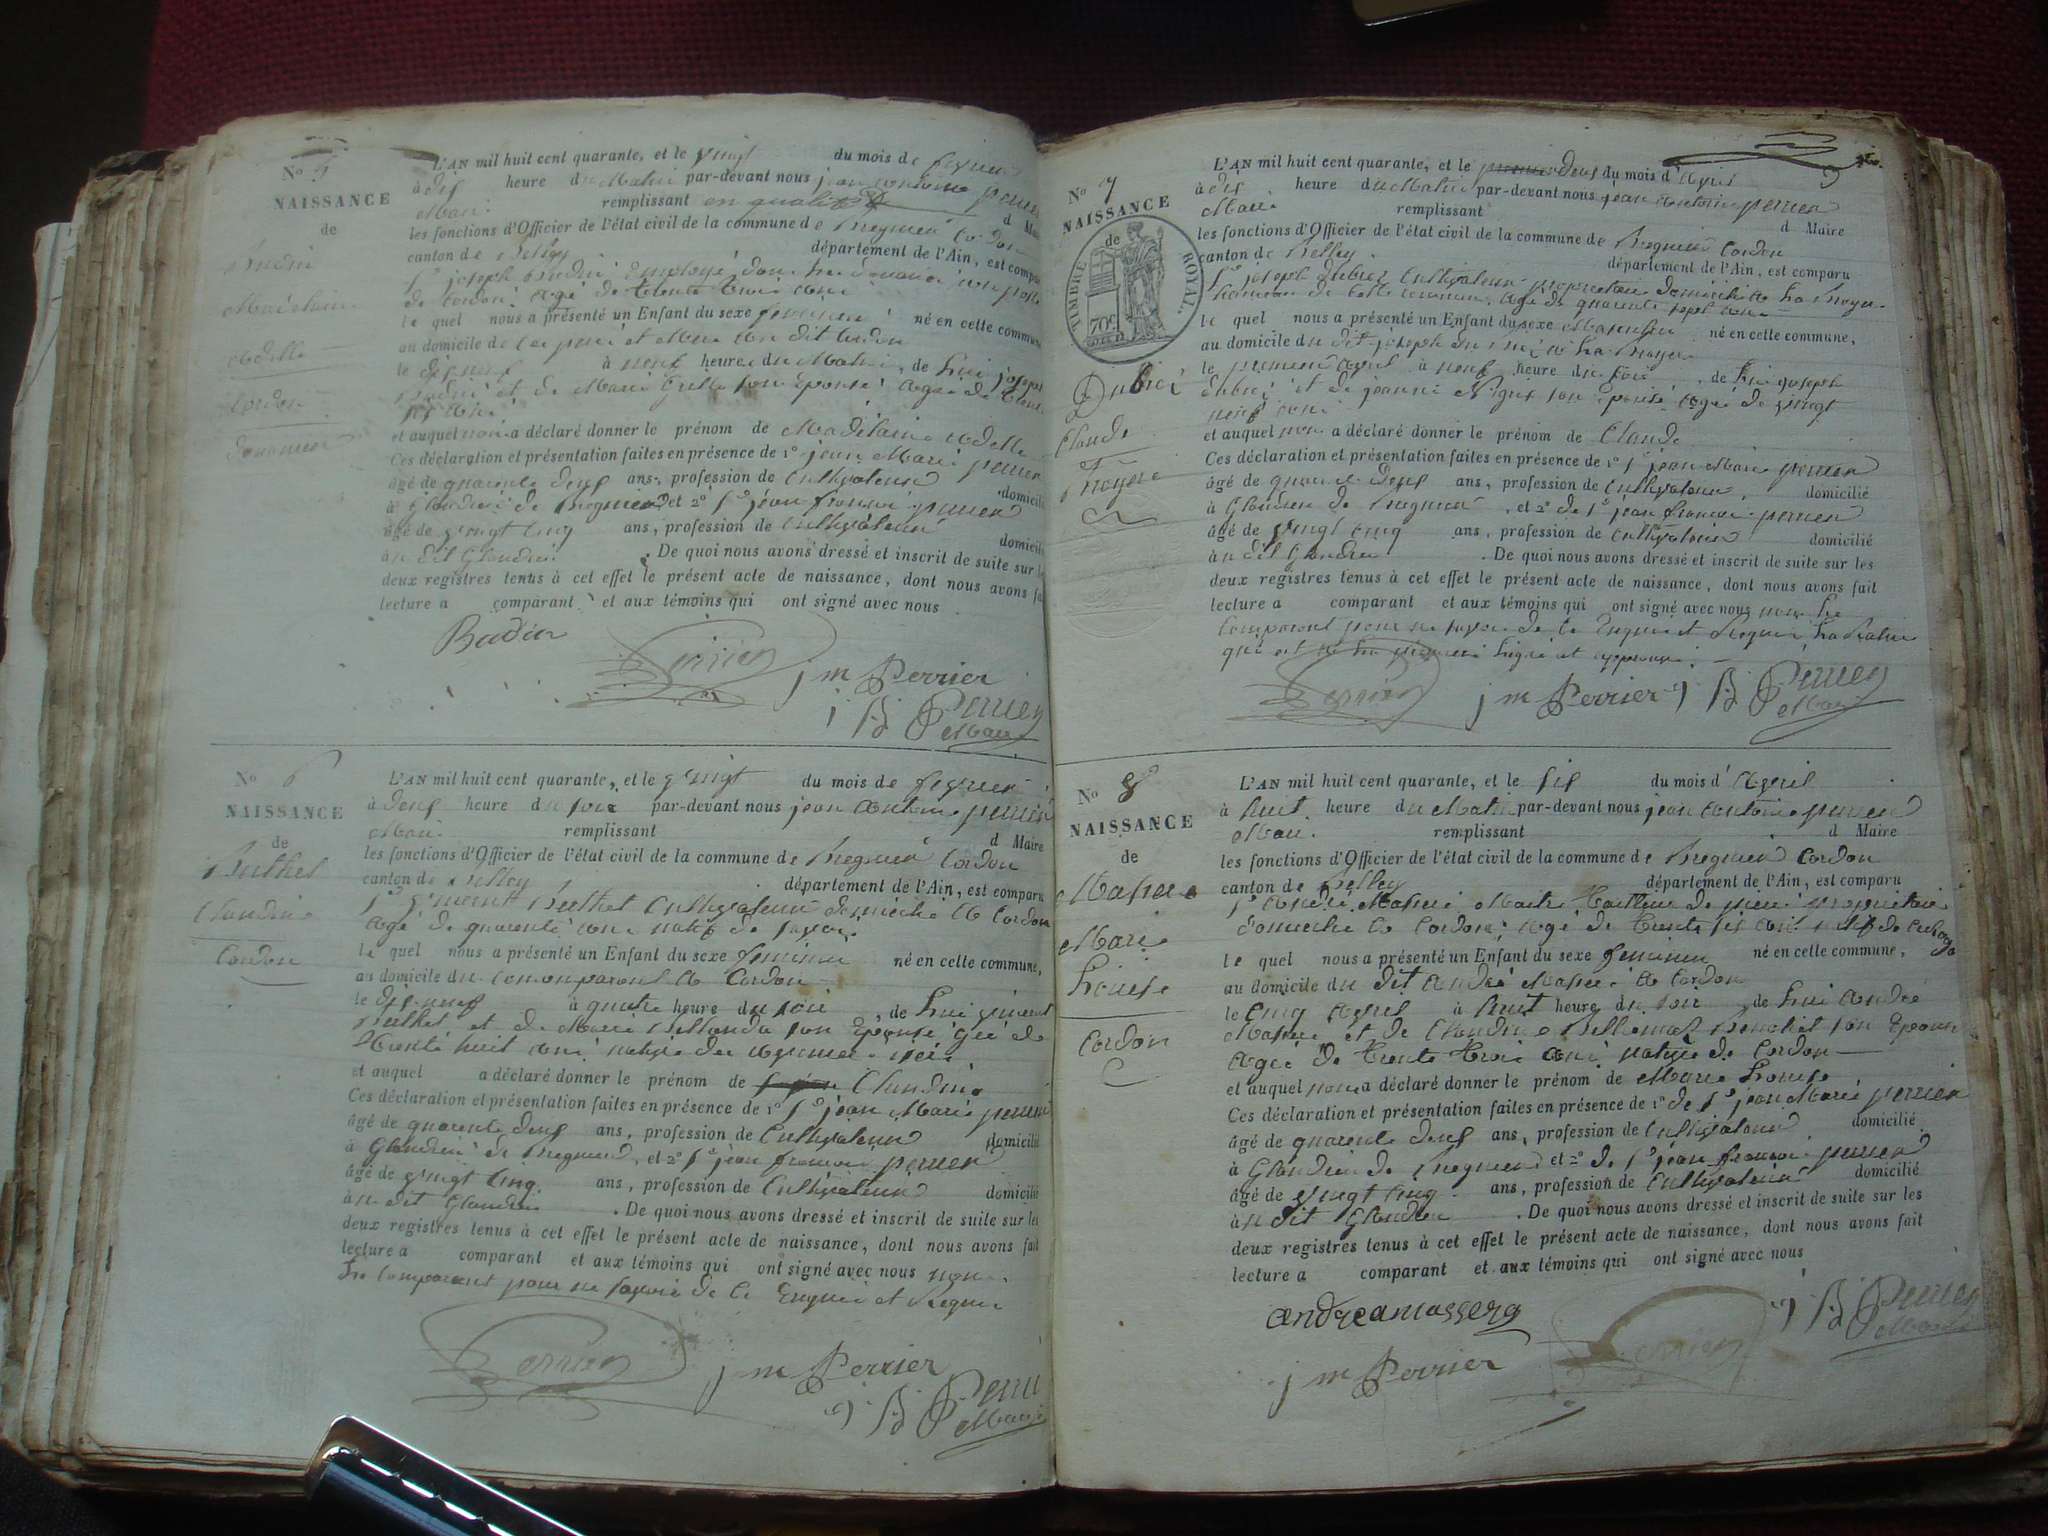 No 5
NAISSANCE
de
Madelaine
Adelle
Cordon
L'AN mil huit cent quarante, et le vingt du mois de fevrier
à dix heure du Matin par-devant nous jean antoine perrier
Maire remplissant en qualité d Maire
les fonctions d'Officier de l'état civil de la commune de Bregnier Cordon
canton de Belley département de l'Ain, est comparu
Sr joseph Employé dans les douanes
de Cordon agé de trente trois ans
le quel nous a présenté un Enfant du sexe feminin né en cette commune
au domicile de ses pere et Mere au dit Cordon
le dix neuf à neuf heures du Matin, de lui joseph
et de Marie son Epouse agée de trente
six ans
et auquel nous a déclaré donner le prénom de Madelaine Adelle
Ces déclaration et présentation faites en présence de 1º Sr jean Marie perrier
âgé de quarente deux ans, profession de Cultivateur domicilié
à Glandieu de Bregnier et 2º Sr jean francois perrier
âgé de vingt cinq ans, profession de cultivateur domicilié
à u dit Glandieu. De quoi nous avons dressé et inscrit de suite sur les
deux registres tenus à cet effet le présent acte de naissance, dont nous avons fait
lecture a comparant et aux témoins qui ont signé avec nous
Perrier j m Perrier
j B Perrier
Maire
No 6
NAISSANCE
de
Berthet
Claudine
Cordon
L'AN mil huit cent quarante, et le vingt du mois de fevrier
à deux heure du soir par-devant nous jean antoine perrier
Maire remplissant d Maire
les fonctions d'Officier de l'état civil de la commune de Bregnier Cordon
canton de Belley département de l'Ain, est comparu
Sr vincent Berthet Cultivateur domicilié a Cordon
agé de quarente ans natif de savoie
le quel nous a présenté un Enfant du sexe feminin né en cette commune,
au domicile du comparant a Cordon
le dix neuf à quatre heure du soir, de lui vincent
Berthet et de Marie son Epouse agée de
trente huit ans native des
et auquel a déclaré donner le prénom de Claudine
Ces déclaration et présentation faites en présence de 1º Sr jean Marie perrier
âgé de quarente deux ans, profession de Cultivateur domicilié
à Glandieu de Bregnier, et 2º Sr jean francois perrier
âgé de vingt cinq ans, profession de Cultivateur domicilié
à u dit Glandieu. De quoi nous avons dressé et inscrit de suite sur les
deux registres tenus à cet effet le présent acte de naissance, dont nous avons fait
lecture a comparant et aux témoins qui ont signé avec nous non
le comparant pour ne savoir de ce Enquis et Requis
Perrier j m Perrier
j B Perrier
Maire
No 7
NAISSANCE
de
TIMBRE ROYAL
70c
Dubiez
Claude
L'AN mil huit cent quarante, et le premier deux du mois d'Avril
à dix heure du Matin par-devant nous jean antoine perrier
Maire remplissant d Maire
les fonctions d'Officier de l'état civil de la commune de Bregnier Cordon
canton de Belley département de l'Ain, est comparu
Sr joseph Cultivateur proprietaire domicilié
hameau de cette commune agé de quarente sept ans
le quel nous a présenté un Enfant du sexe Masculin né en cette commune,
au domicile du dit joseph
le premier avril à neuf heure du soir, de lui joseph
et de jeanne son épouse agée de vingt
neuf ans
et auquel nous a déclaré donner le prénom de Claude
Ces déclaration et présentation faites en présence de 1º Sr jean Marie perrier
âgé de quarente deux ans, profession de Cultivateur, domicilié
à Glandieu de Bregnier, et 2º de Sr jean francois perrier
âgé de vingt cinq ans, profession de cultivateur domicilié
à u dit Glandieu. De quoi nous avons dressé et inscrit de suite sur les
deux registres tenus à cet effet le présent acte de naissance, dont nous avons fait
lecture a comparant et aux témoins qui ont signé avec nous non le
comparant pour ne savoir de ce Enquis et Requis
Perrier j m Perrier j B Perrier
Maire
No 8
NAISSANCE
de
Marie
Louise
Cordon
L'AN mil huit cent quarante, et le six du mois d'Avril
à huit heure du Matin par-devant nous jean antoine perrier
Maire remplissant d Maire
les fonctions d'Officier de l'état civil de la commune de Bregnier Cordon
canton de Belley département de l'Ain, est comparu
Sr André Maitre tailleur de pierre proprietaire
domicilié a Cordon, agé de trente six ans natif de
le quel nous a présenté un Enfant du sexe feminin né en cette commune,
au domicile du dit André a Cordon
le cinq avril à huit heure du soir, de lui André
et de Claudine son Epouse
agée de trente trois ans native de Cordon
et auquel nous a déclaré donner le prénom de Marie Louise
Ces déclaration et présentation faites en présence de 1º de Sr jean Marie perrier
âgé de quarente deux ans, profession de cultivateur domicilié
à Glandieu de Bregnier et 2º de Sr jean francois perrier
âgé de vingt cinq ans, profession de Cultivateur domicilié
à u dit Glandieu. De quoi nous avons dressé et inscrit de suite sur les
deux registres tenus à cet effet le présent acte de naissance, dont nous avons fait
lecture a comparant et aux témoins qui ont signé avec nous
j B Perrier
Maire
j m Perrier Perrier